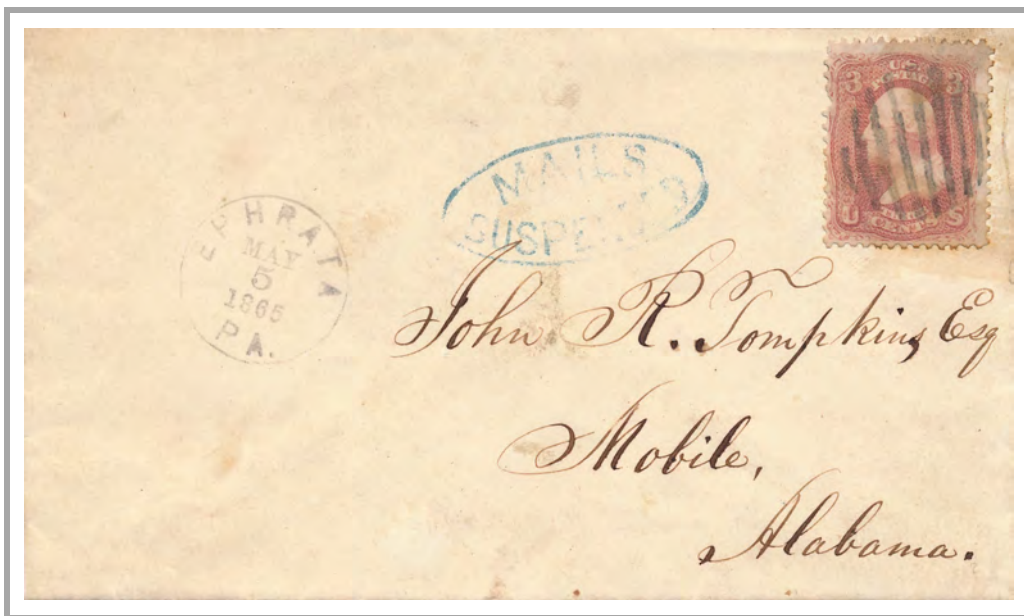 EPHRATA
MAY
5
1865
PA.
MAILS
SUSPENDED
3 U.S. 3
POSTAGE
U S
CENTS
John R. Tompkins, Esq
Mobile,
Alabama.